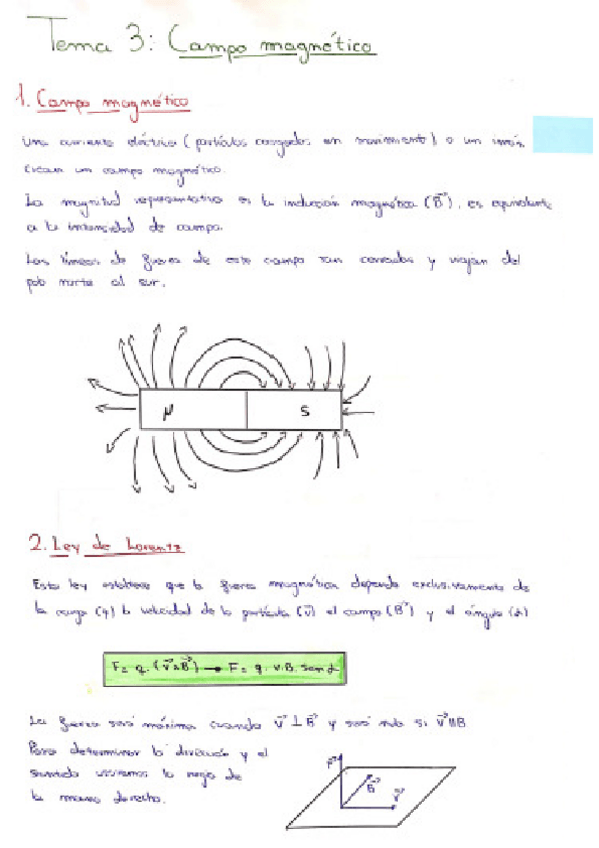 Tema 3: Campo magnético
1. Campo magnético
Una corriente eléctrica (partículas cargadas en movimiento) o un imán
crean un campo magnético.
La magnitud representativa es la inducción magnética (B⃗), es equivalente
a la intensidad de campo.
Las líneas de fuerza de este campo son cerradas y viajan del
polo norte al sur.
N S
2. Ley de Lorentz
Esta ley establece que la fuerza magnética depende exclusivamente de
la carga (q) la velocidad de la partícula (v⃗) el campo (B⃗) y el ángulo (α)
F = q · (v⃗ ∧ B⃗) → F = q · v · B · sen α
La fuerza será máxima cuando v⃗ ⊥ B⃗ y será nula si v⃗ ∥ B
Para determinar la dirección y el
sentido usamos la regla de
la mano derecha.
F⃗
B⃗
v⃗